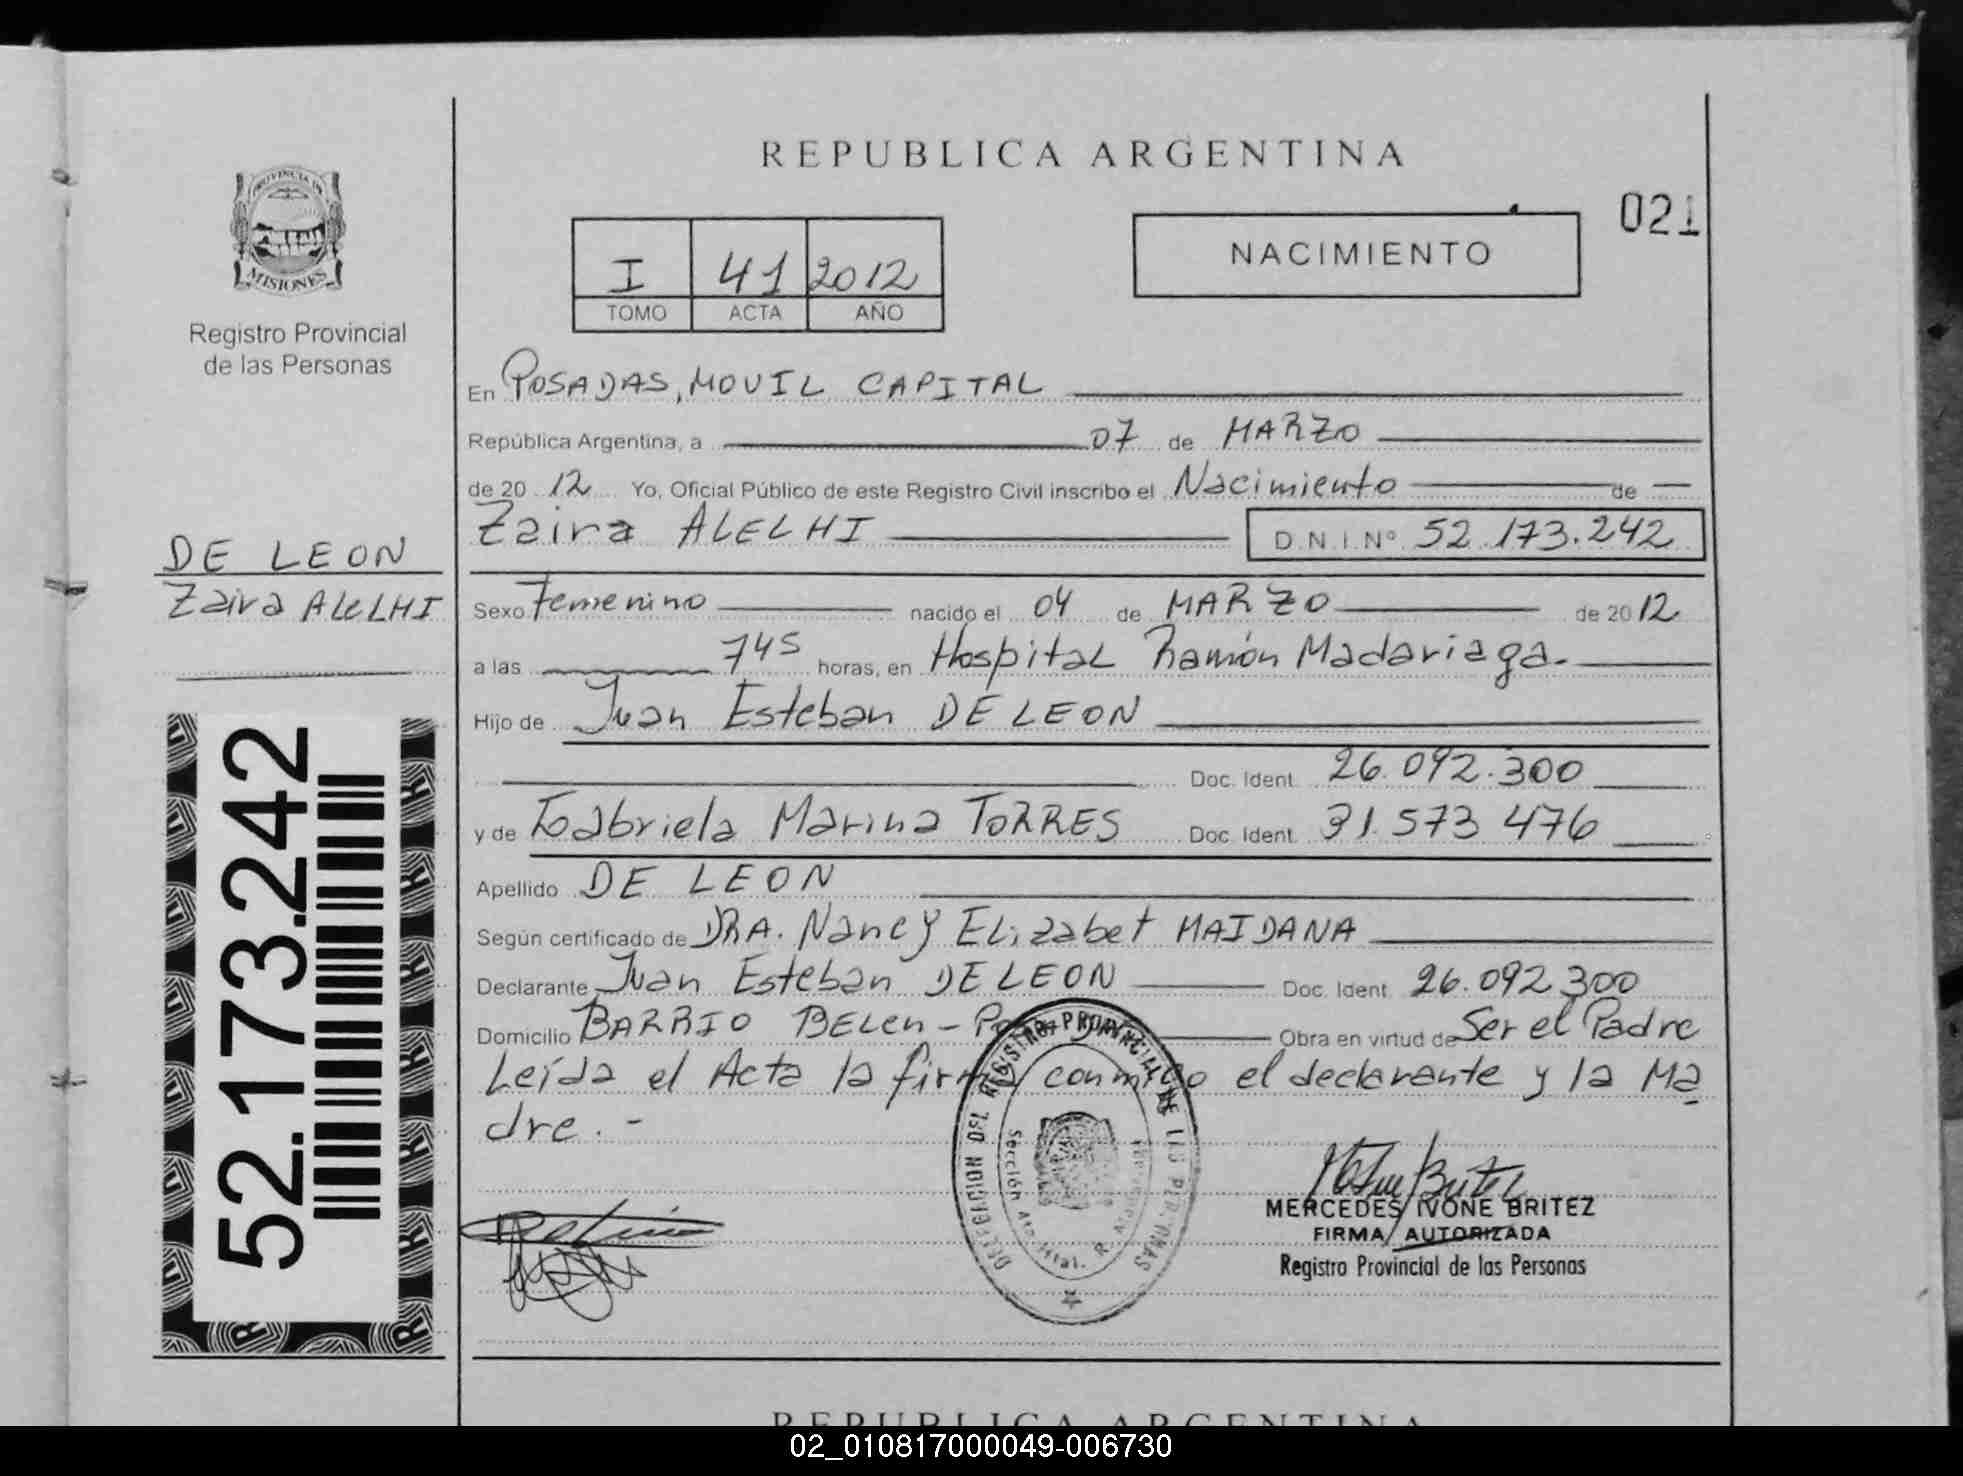 REPUBLICA ARGENTINA
021
PROVINCIA DE
MISIONES
Registro Provincial
de las Personas
I 41 2012
TOMO ACTA AÑO
NACIMIENTO
En POSADAS, MOVIL CAPITAL
República Argentina, a 07 de MARZO
de 20 12 Yo, Oficial Público de este Registro Civil inscribo el Nacimiento de
Zaira ALELHI D.N.I.Nº 52.173.242
DE LEON
Zaira ALELHI
Sexo Femenino nacido el 04 de MARZO de 2012
a las 745 horas, en Hospital Ramón Madariaga.
Hijo de Juan Esteban DE LEON
Doc. Ident. 26.092.300
y de Gabriela Marina TORRES Doc. Ident. 31.573 476
Apellido DE LEON
Según certificado de DRA. Nancy Elizabet MAIDANA
Declarante Juan Esteban DE LEON Doc. Ident. 26.092 300
Domicilio BARRIO BELEN - Obra en virtud de Ser el Padre
Leída el Acta la firma conmigo el declarante y la Ma
dre. -
52.173.242
DIRECCION DEL REGISTRO PROVINCIAL DE LAS PERSONAS
Sección
MERCEDES IVONE BRITEZ
FIRMA AUTORIZADA
Registro Provincial de las Personas
REPUBLICA ARGENTINA
02_010817000049-006730